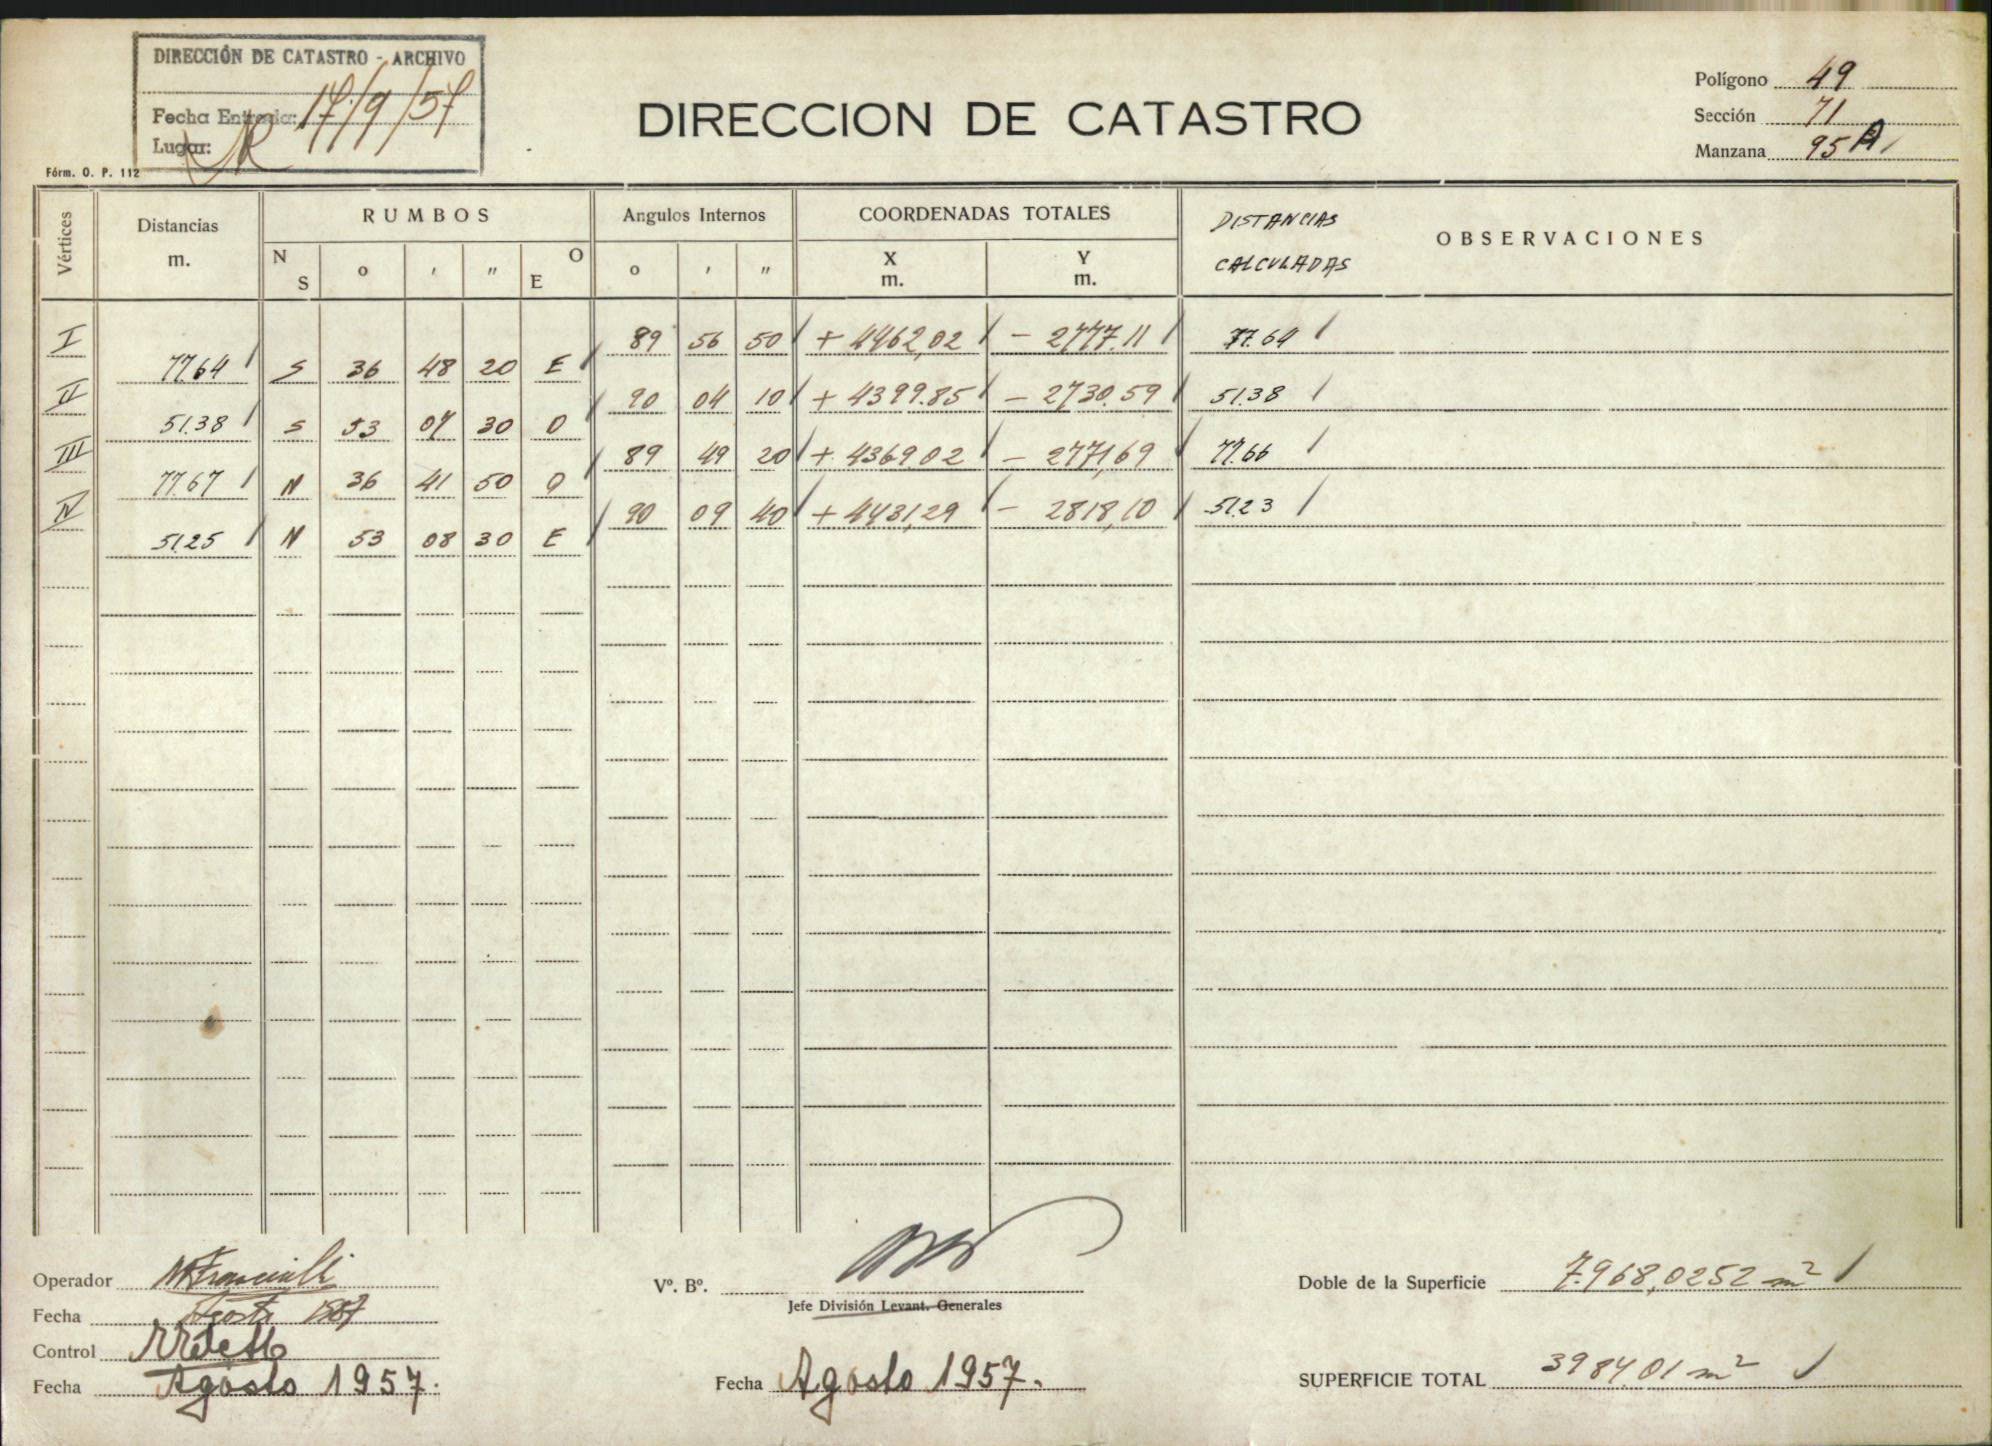 DIRECCIÓN DE CATASTRO - ARCHIVO
Fecha Entrada: 17/9/57
Lugar:
Fórm. O. P. 112
DIRECCION DE CATASTRO
Polígono 49
Sección 71
Manzana 95 A
Vértices Distancias m. RUMBOS N S o ' " O E Angulos Internos o ' " COORDENADAS TOTALES X m. Y m. DISTANCIAS CALCULADAS OBSERVACIONES
I 89 56 50 + 4462,02 - 2777.11 77.64
77.64 S 36 48 20 E
II 90 04 10 + 4399.85 - 2730.59 51.38
51.38 S 53 07 30 O
III 89 49 20 + 4369 02 - 2771,69 77.66
77.67 N 36 41 50 O
IV 90 09 40 + 4431,29 - 2818,10 51.23
51.25 N 53 08 30 E
Operador
Fecha Agosto 1957
Control
Fecha Agosto 1957.
Vº. Bº.
Jefe División Levant. Generales
Fecha Agosto 1957.
Doble de la Superficie 7.968,0252 m²
SUPERFICIE TOTAL 3984,01 m²